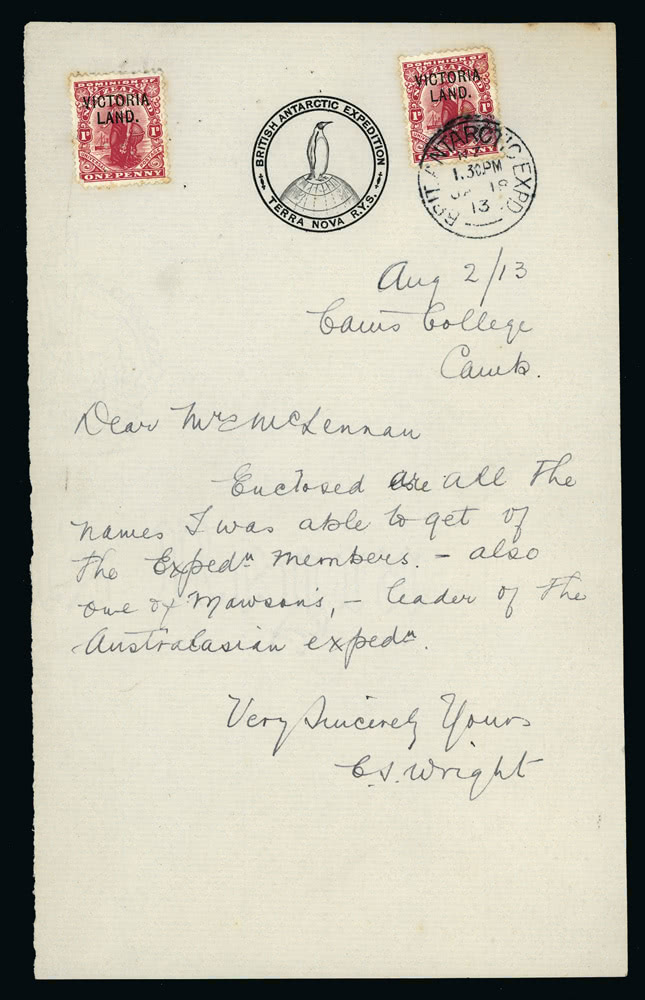 DOMINION OF
ZEALAND
VICTORIA
LAND.
1D 1D
UNIVERSAL POSTAGE
ONE PENNY
BRITISH ANTARCTIC EXPEDITION
TERRA NOVA R.Y.S.
DOMINION OF
ZEALAND
VICTORIA
LAND.
1D
PENNY
BRIT. ANTARCTIC EXPD.
1.30PM
JA 18
13
Aug 2/13
Caius College
Camb.
Dear Mrs McLennan
Enclosed are all the
names I was able to get of
the Expedn members. – also
one of Mawson's, – leader of the
Australasian expedn.
Very Sincerely Yours
C.S. Wright